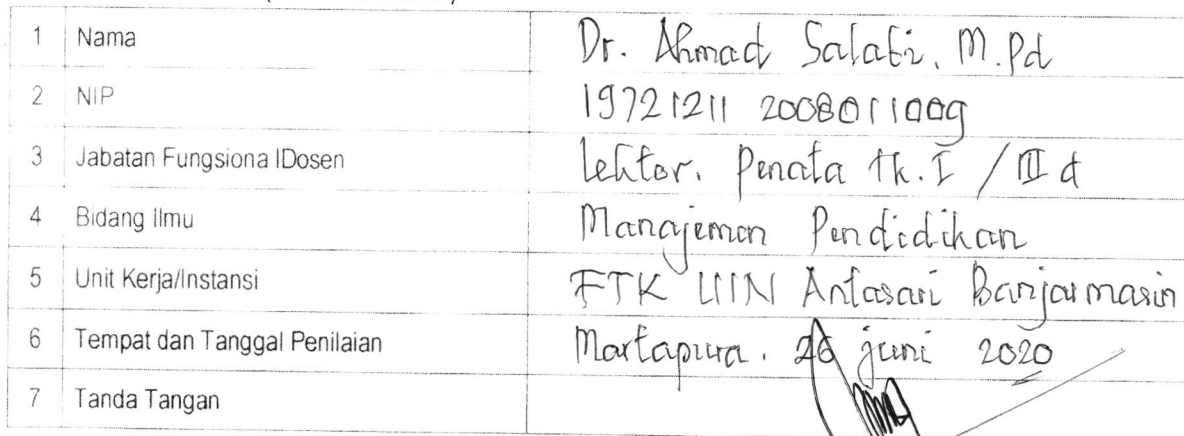 1 Nama Dr. Ahmad Salabi, M.Pd
2 NIP 19721211 2008011009
3 Jabatan Fungsiona lDosen Lektor. Penata Tk. I / III d
4 Bidang Ilmu Manajemen Pendidikan
5 Unit Kerja/Instansi FTK UIN Antasari Banjarmasin
6 Tempat dan Tanggal Penilaian Martapura. 26 juni 2020
7 Tanda Tangan